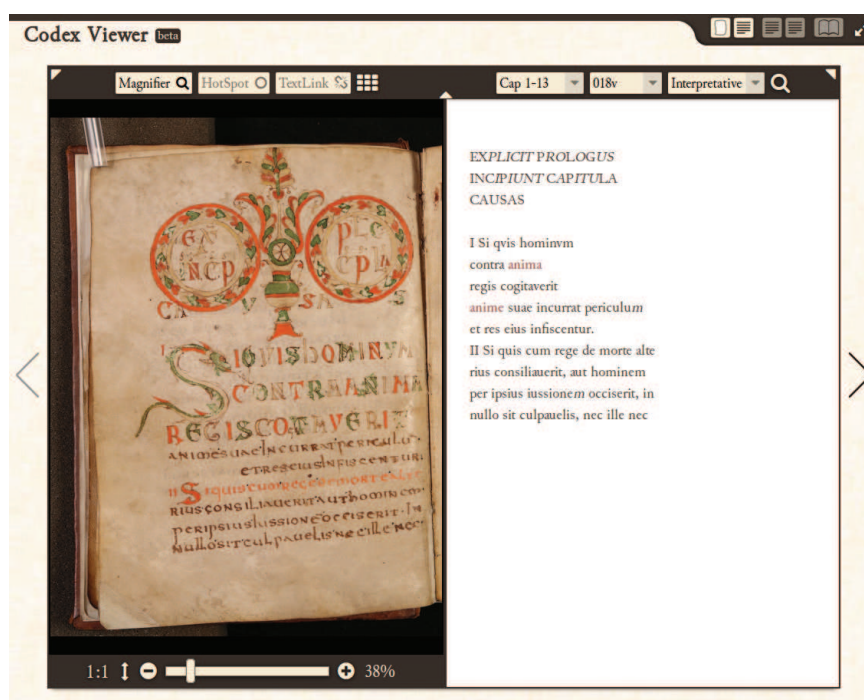 Codex Viewer beta
Magnifier HotSpot TextLink Cap 1-13 018v Interpretative
EXPLICIT PROLOGUS
INCIPIUNT CAPITULA
CAUSAS
I Si qvis hominvm
contra anima
regis cogitaverit
anime suae incurrat periculum
et res eius infiscentur.
II Si quis cum rege de morte alte
rius consiliauerit, aut hominem
per ipsius iussionem occiserit, in
nullo sit culpauelis, nec ille nec
EX
INCP
PLG
CPLA
CA V SA S
I SIQVISHOMINVM
CONTRAANIMA
REGISCOTAVERIT
ANIMESUAEINCURRATPERICULU
ETRESEIUSINFISCENTUR
II SIQUISCUMREGEDEMORTEALTE
RIUSCONSILIAUERITAUTHOMINEM
PERIPSIUSIUSSIONEOCCISERIT·IN
NULLOSITCULPAUELISNECILLENEC
1:1 38%